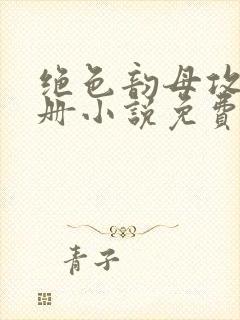 绝色韵母攻
册小说免费
青子